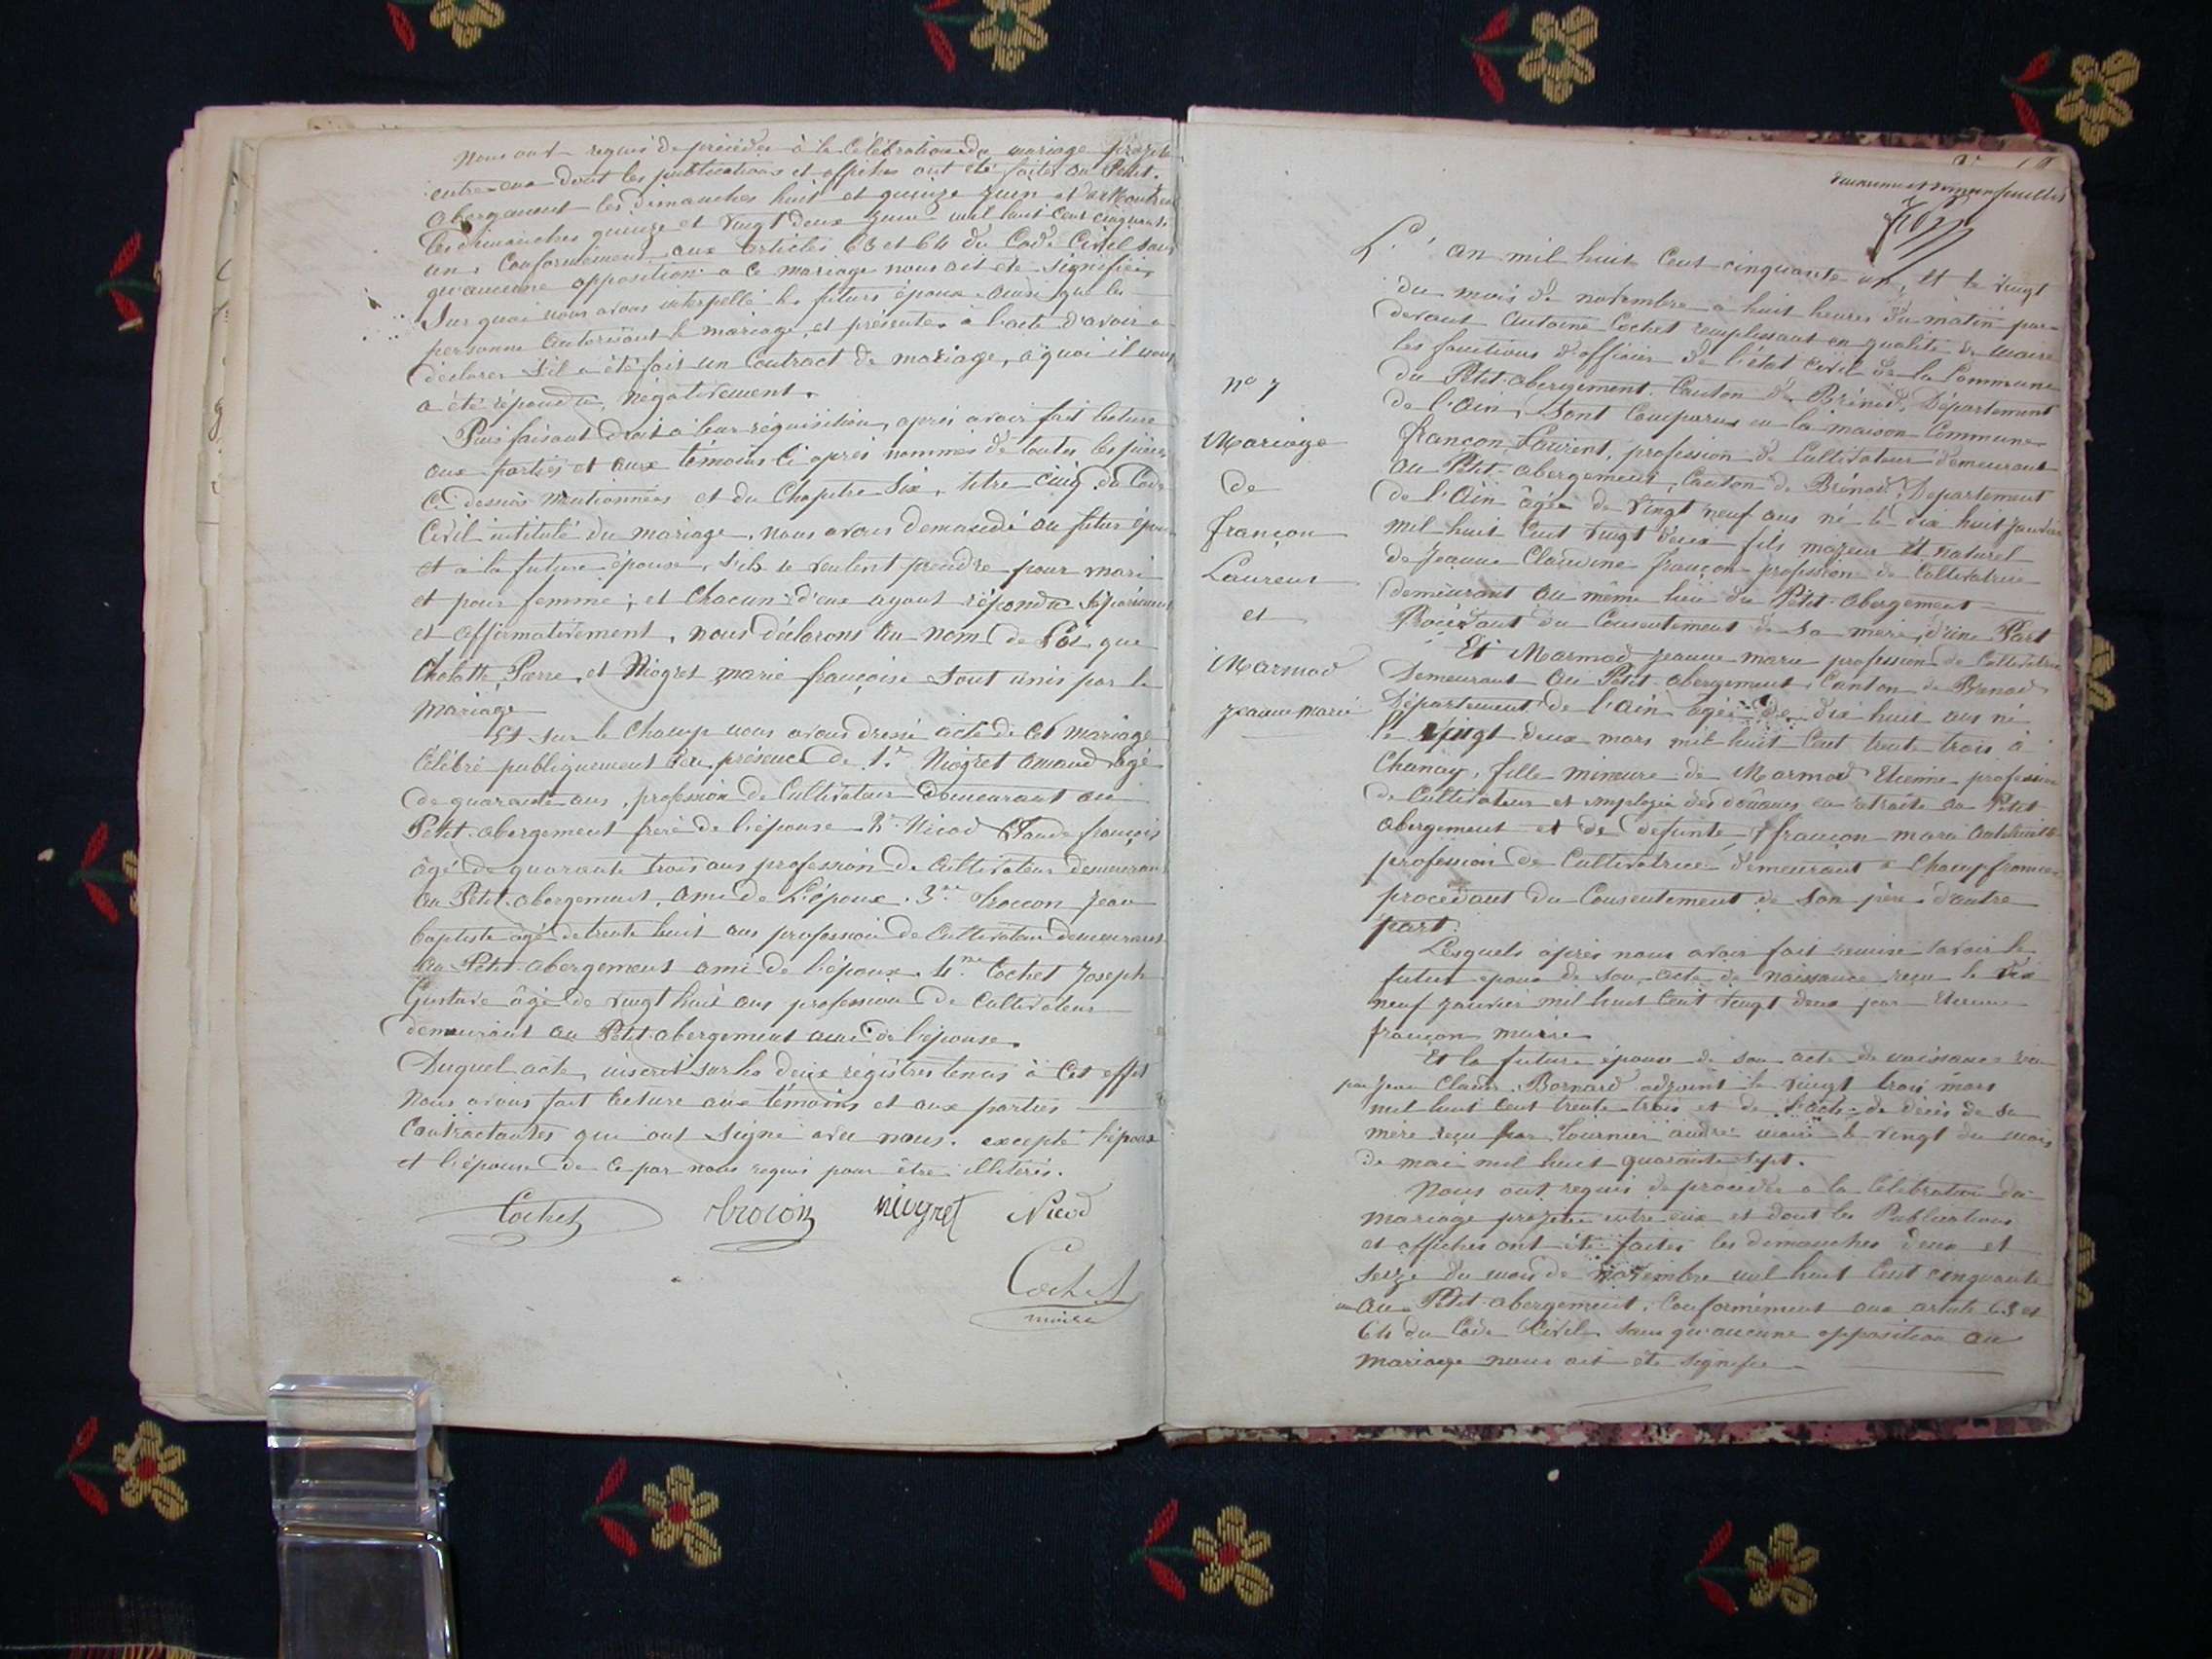 Nous ont requis de procéder à la Célébration du mariage projeté
entre eux dont les publications et affiches ont été faites au Petit-
abergement les dimanches huit et quinze Juin et
les dimanches quinze et vingt deux Juin mil huit Cent cinquante
un, Conformément aux articles 63 et 64 du Code Civil sans
qu'aucune opposition a ce mariage nous ait été signifiée,
Sur quoi nous avons interpellé les futurs époux ainsi que les
personnes autorisant le mariage, et présentes à l'acte d'avoir a
déclarer s'il a été fait un Contract de mariage, à quoi il nous
a été répondu, négativement.
Puis faisant droit à leur réquisition, après avoir fait lecture
aux parties et aux témoins ci après nommés de toutes les pièces
Ci-dessus Mentionnées et du Chapitre Six, titre cinq du Code
Civil intitulé du mariage, nous avons demandé au futur époux
et à la future épouse, s'ils se veulent prendre pour mari
et pour femme ; et Chacun d'eux ayant répondu séparément
et affirmativement, nous déclarons au nom de Loi, que
Pierre, et Niogret marie françoise Sont unis par le
Mariage
Et sur le Champ nous avons dressé acte de Cet mariage
Célébré publiquement en présence de 1.r Niogret amand âgé
de quarante ans, profession de Cultivateur demeurant au
Petit-abergement frère de l'épouse 2.e Nicod Claude françois
âgé de quarante trois ans profession de Cultivateur demeurant
au Petit abergement, ami de L'époux. 3.me Jean
baptiste âgé de trente huit ans profession de Cultivateur demeurant
au Petit-abergement ami de l'époux. 4.me Cochet Joseph
Gustave âgé de vingt huit ans profession de Cultivateur
demeurant au Petit abergement ami de l'épouse.
Duquel acte, inscrit sur les deux régistres tenus à Cet effet
Nous avons fait lecture aux témoins et aux parties
Contractantes qui ont signé avec nous. excepté l'époux
et l'épouse de ce par nous requis pour être illiterés.
Cochet niogret Nicod
Cochet
maire
feuillet
N° 7
Mariage
de
françon
Laurent
et
Marmod
Jeanne-marie
L'an mil huit Cent cinquante un, et le vingt
du mois de novembre a huit heures du matin par-
devant Antoine Cochet remplissant en qualité de Maire
les fonctions d'officier de l'état civil de la Commune
du Petit-abergement Canton de Brénod, Département
de l'Ain, Sont Comparus en la maison Commune
françon Laurent, profession de Cultivateur demeurant
au Petit-abergement, Canton de Brénod, Département
de l'Ain âgé de vingt neuf ans né le dix huit janvier
mil huit Cent vingt deux fils majeur et naturel
de Jeanne Claudine françon profession de Cultivatrice
demeurant au même lieu du Petit-abergement
du Consentement de Sa mère, d'une Part
Et Marmod Jeanne marie profession de Cultivatrice
Demeurant au Petit-abergement Canton de Brenod
Département de l'ain âgée de dix huit ans né
le vingt deux mars mil huit Cent trente trois à
Chanay, fille mineure de Marmod Etienne profession
de Cultivateur et employé des douanes en retraite au Petit
abergement et de defunte françon marie
profession de Cultivatrice demeurant a
procedant du Consentement de Son père d'autre
part.
Lesquels après nous avoir fait remise savoir le
futur epoux de son acte de naissance reçu le dix
neuf janvier mil huit Cent vingt deux par Etienne
françon maire
Et la future épouse de son acte de naissance
par Jean Claude Bornard adjoint le vingt trois mars
mil huit Cent trente trois et de l'acte de décès de sa
mère reçu par Tournier andré maire le vingt du mois
de mai mil huit quarante sept.
Nous ont requis de proceder a la Célébration du
Mariage projetée entre eux et dont les Publications
et affiches ont été faites les dimanches deux et
seize du mois de novembre mil huit Cent cinquante
un au Petit-abergement, Conformément aux article 63 et
64 du Code Civil sans qu'aucune opposition au
Mariage nous ait été signifié